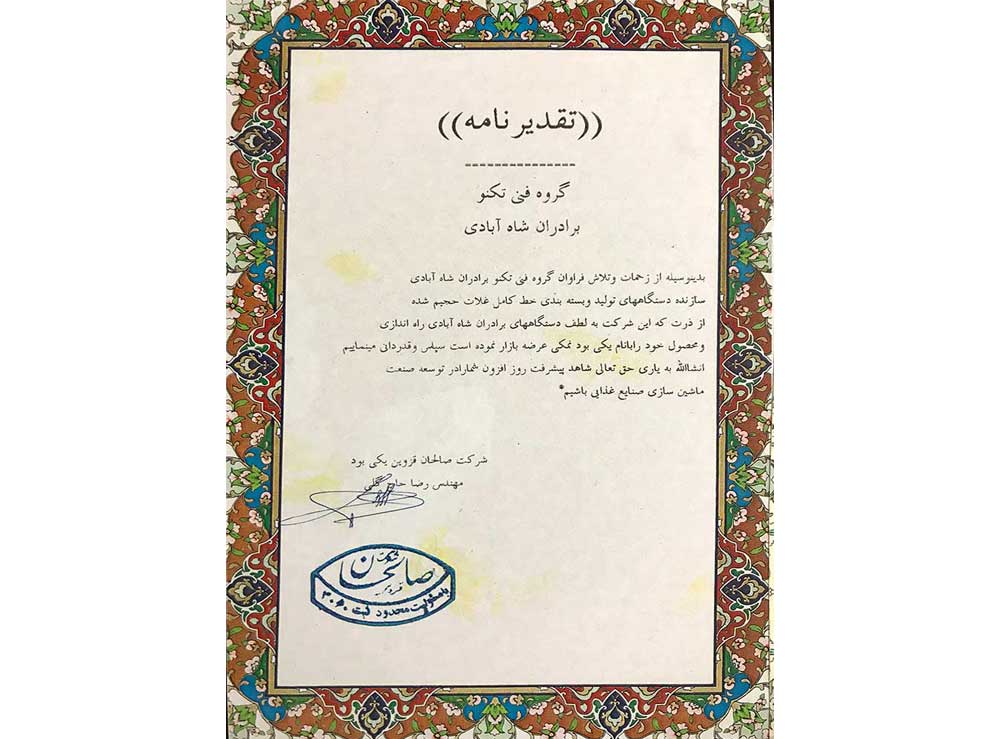 ((تقدیر نامه))
---------------
گروه فنی تکنو
برادران شاه آبادی
بدینوسیله از زحمات وتلاش فراوان گروه فنی تکنو برادران شاه آبادی
سازنده دستگاههای تولید وبسته بندی خط کامل غلات حجیم شده
از ذرت که این شرکت به لطف دستگاههای برادران شاه آبادی راه اندازی
ومحصول خود رابانام یکی بود نمکی عرضه بازار نموده است سپاس وقدردانی مینماییم
انشاالله به یاری حق تعالی شاهد پیشرفت روز افزون شمارادر توسعه صنعت
ماشین سازی صنایع غذایی باشیم*
شرکت صالحان قزوین یکی بود
مهندس رضا حاج گلی
شرکت
صالحان
قزوین
بامسئولیت محدود ثبت ۳۰۶۰